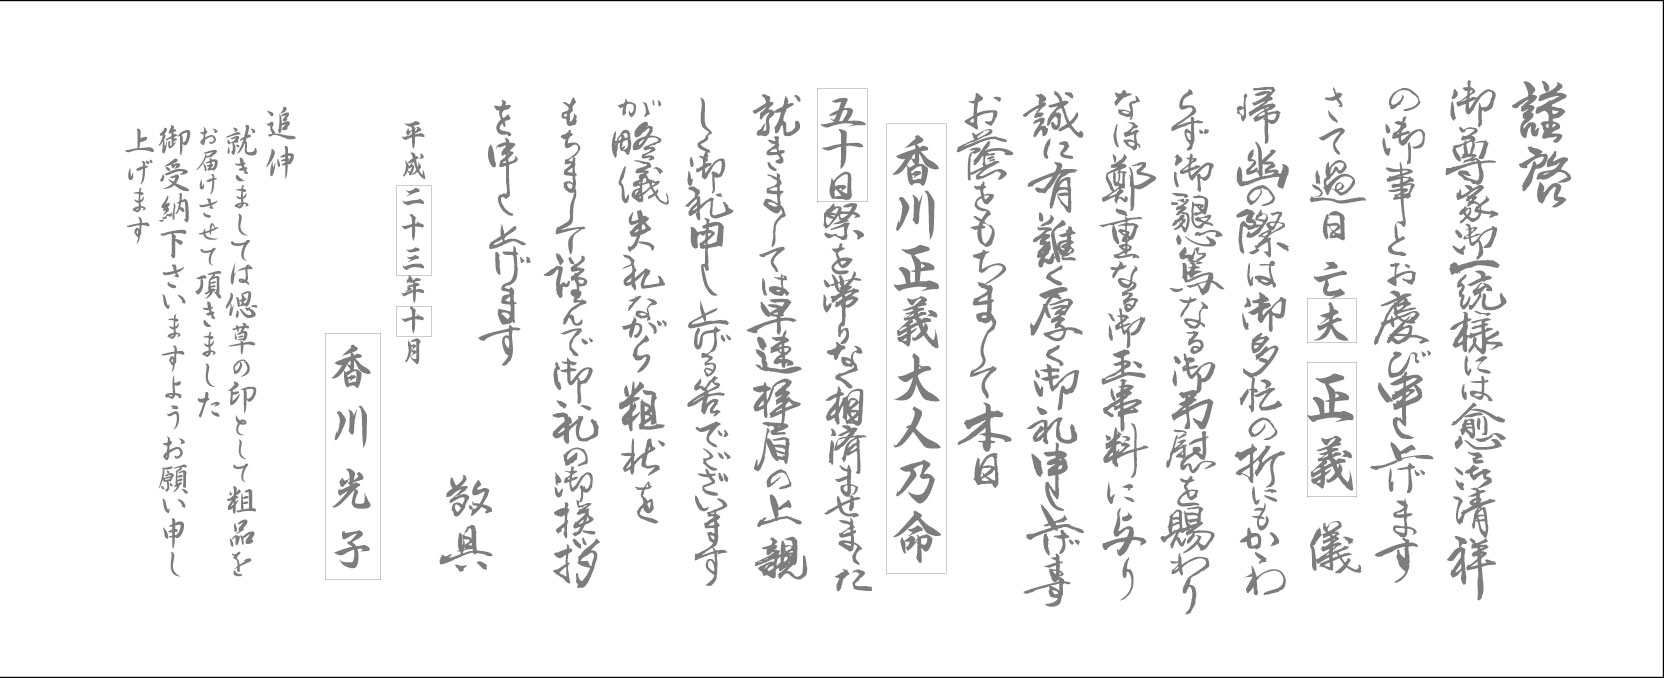 謹啓
御尊家御一統様には愈々清祥
の御事とお慶び申し上げます
さて過日 亡夫 正義 儀
帰幽の際は御多忙の折にもかゝわ
らず御懇篤なる御弔慰を賜わり
なほ鄭重なる御玉串料に与り
誠に有難く厚く御礼申し上げます
お蔭をもちまして本日
香川正義大人乃命
五十日祭を滞りなく相済ませました
就きましては早速拝眉の上親
しく御礼申し上げる筈でございます
が略儀失礼ながら粗状を
もちまして謹んで御礼の御挨拶
を申し上げます
敬具
平成二十三年十月
香川光子
追伸
就きましては偲草の印として粗品を
お届けさせて頂きました
御受納下さいますようお願い申し
上げます